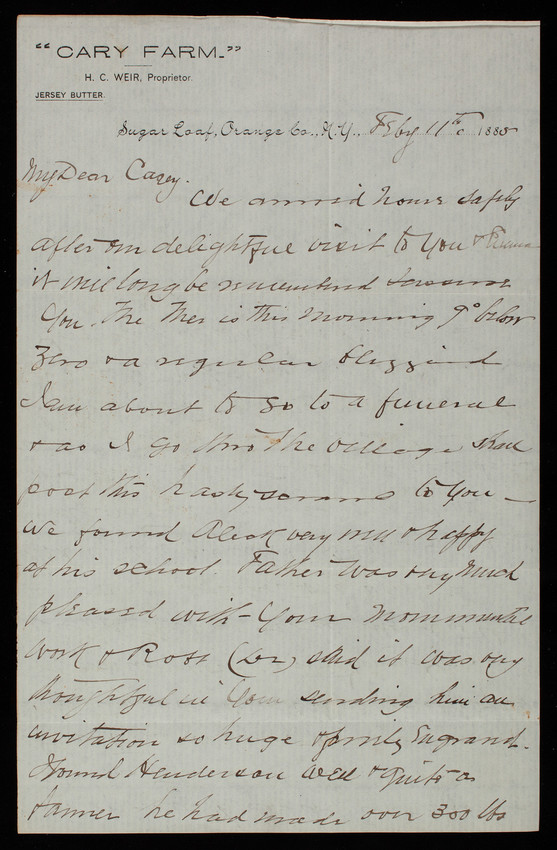 "CARY FARM."
H. C. WEIR, Proprietor.
JERSEY BUTTER.
Sugar Loaf, Orange Co., N.Y., Feby 11th 1885
My Dear Casey.
We arrived home safely
after our delightful visit to you & Emma
it will long be remembered I assure
you. The Ther is this morning 9° below
Zero & a regular blizzard
I am about to go to a funeral
& as I go thro the village shall
post this hasty scrawl to you —
We found Aleck very well & happy
at his school. Father was very much
pleased with your monumental
work & Ross (Dr) said it was very
thoughtful in you sending him an
invitation so huge & finely Engrand.
Found Henderson well & quite a
farmer he had made over 300 lbs